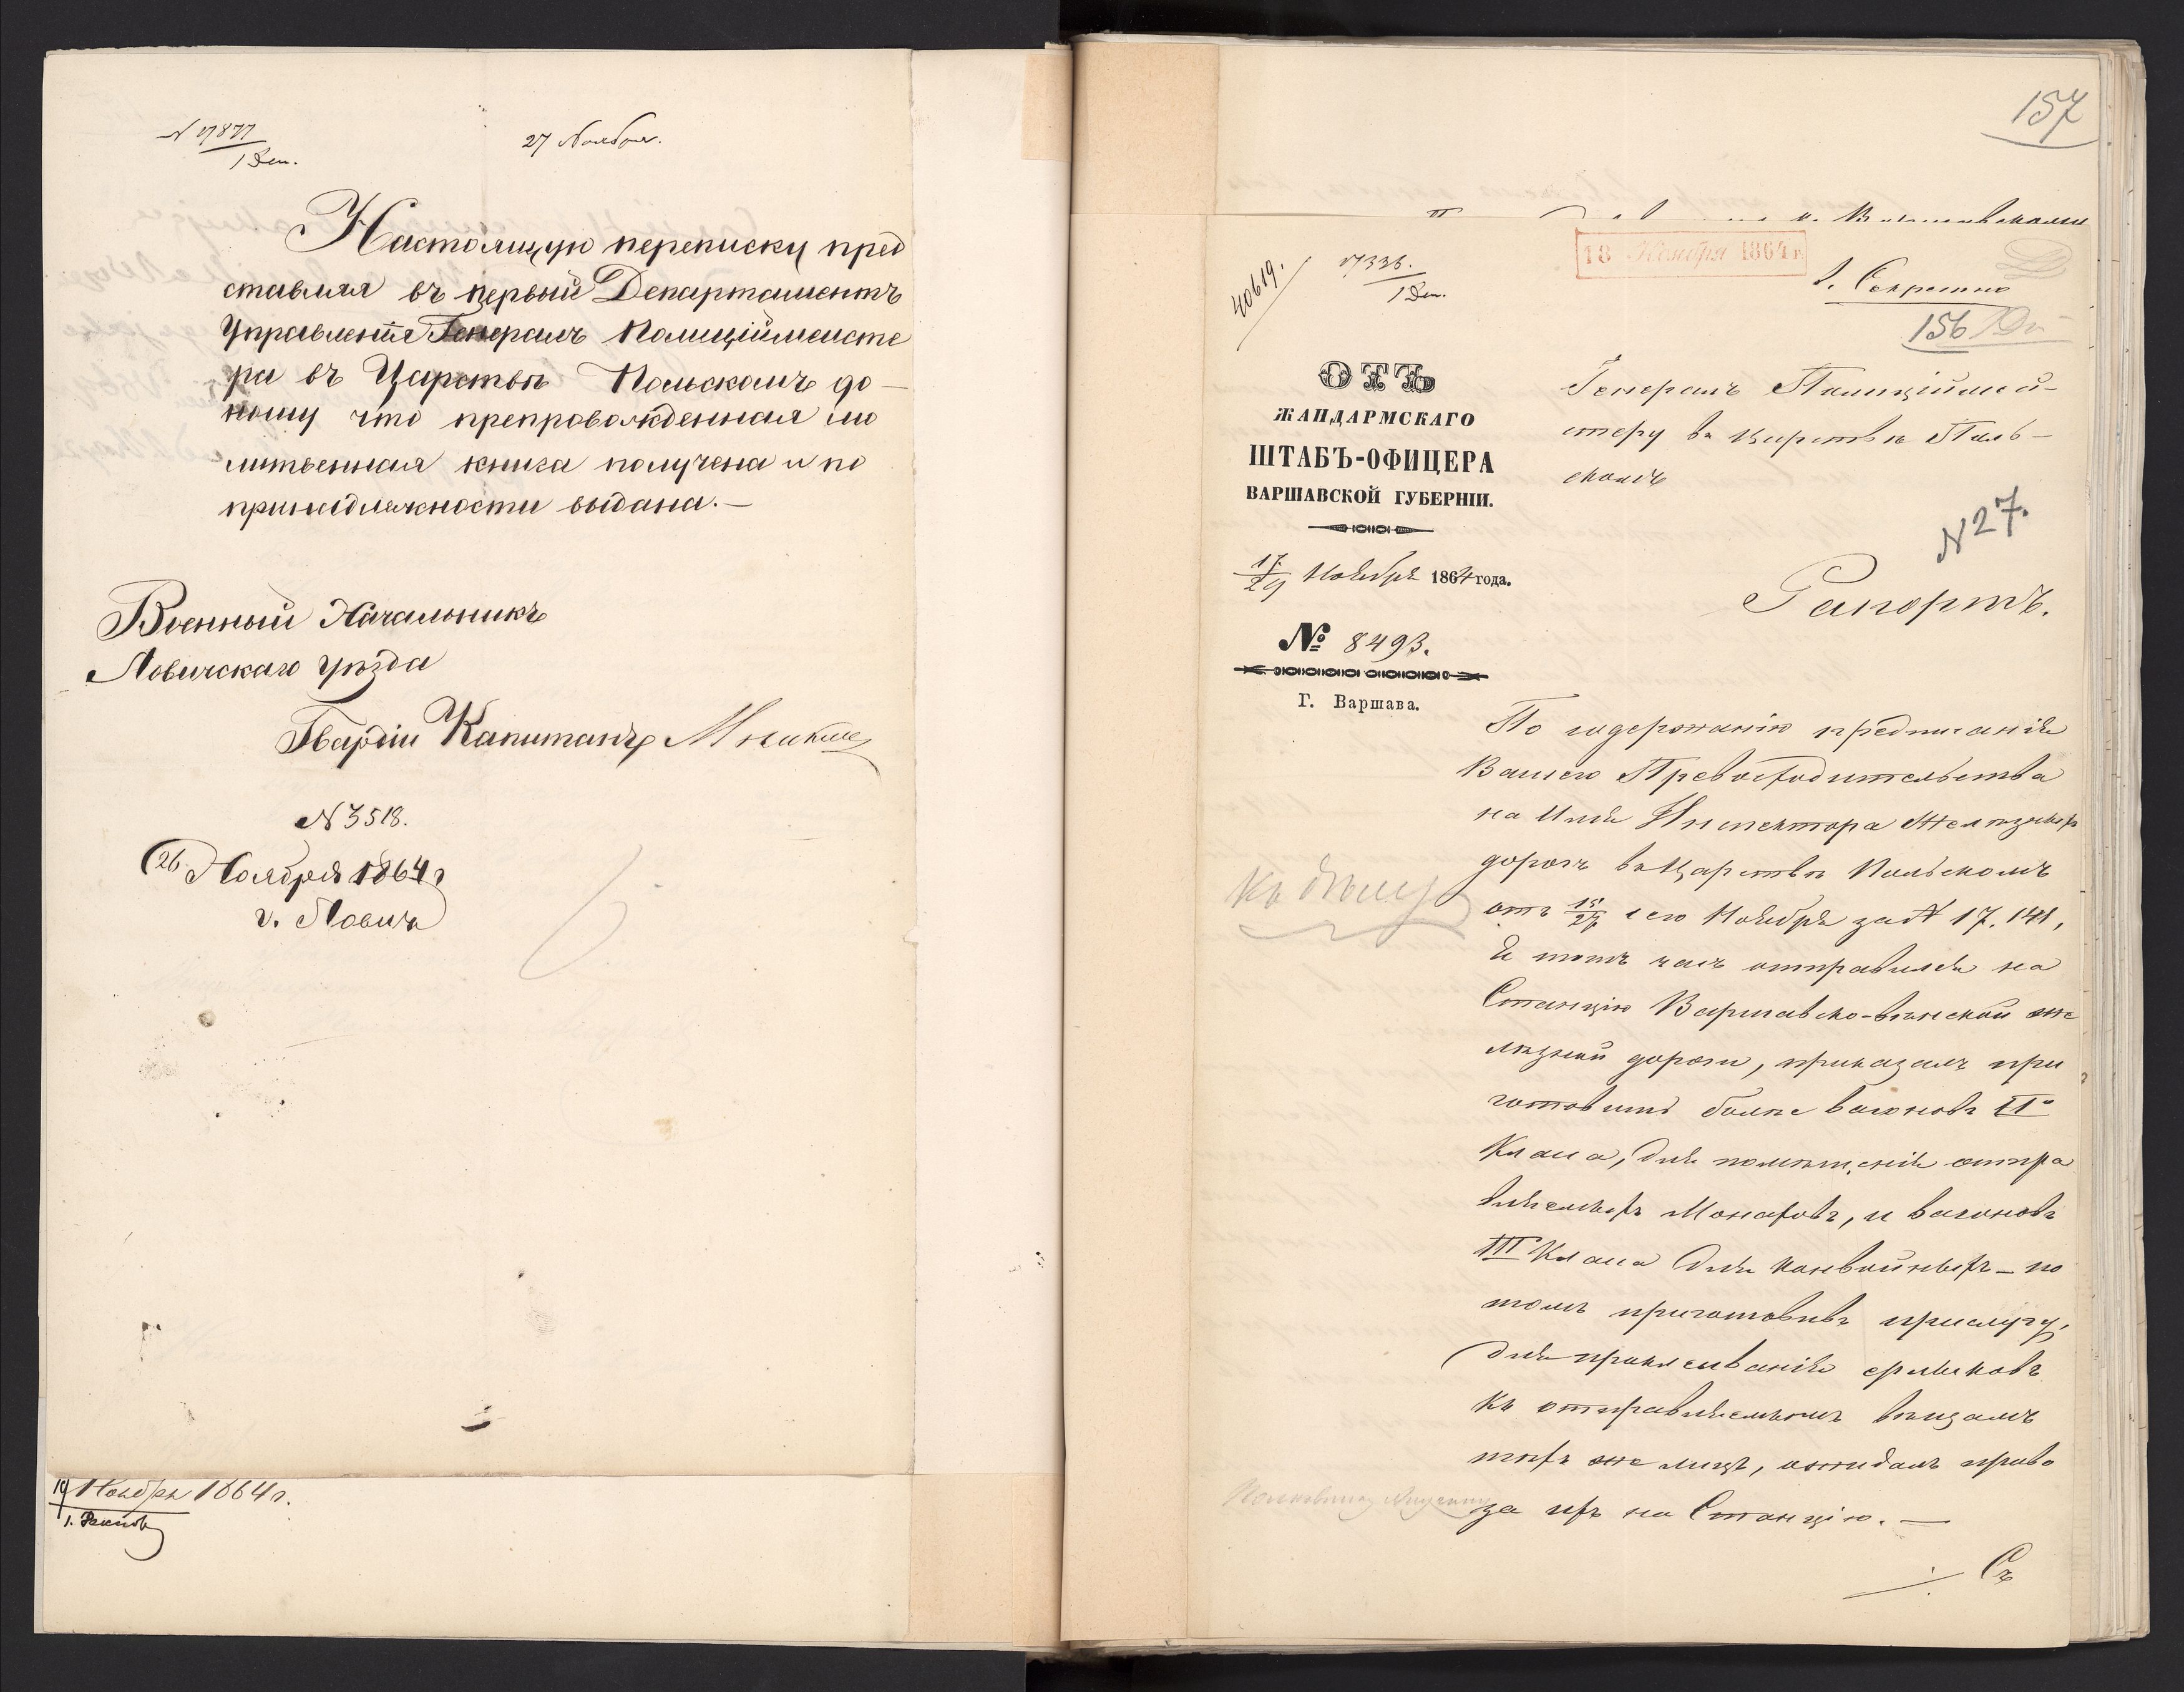 N 17877
1 Деп.
27 Ноября.
Настоящую переписку пред
ставляя въ первый Департаментъ
Управленія Генералъ Полиціймейсте
ра въ Царствѣ Польскомъ до-
ношу что препровожденная мо
литвенная книга получена и по
принадлежности выдана.—
Военный Начальникъ
Ловичскаго уѣзда
Гвардіи Капитанъ
N 3518.
26 Ноября 1864 г
г. Ловичь
19 Ноября 1864 г.
157
40619.
17336.
1 Деп.
18 Ноября 1864 г.
Секретно
156
ОТЪ
ЖАНДАРМСКАГО
ШТАБЪ-ОФИЦЕРА
ВАРШАВСКОЙ ГУБЕРНІИ.
17/29 Ноября 1864 года.
№ 8493.
Г. Варшава.
Генералъ Полиціймей-
стеру въ Царствѣ Поль-
скомъ
N 27.
Рапортъ.
По содержанію предписанія
Вашего Превосходительства
на имя Инспектора Желѣзныхъ
дорогъ въ Царствѣ Польскомъ
Къ дѣлу
отъ 15/27 сего Ноября за N 17,141,
Я тотъ часъ отправился на
Станцію Варшавско-вѣнской же
лѣзной дороги, приказалъ при
готовить болѣе вагоновъ IIо
Класа, для помѣщенія отпра
вляемыхъ Монаховъ, и вагоновъ
III Класа для конвойныхъ — по
томъ приготовивъ прислугу,
для приклеиванія ярлыковъ
къ отправляемымъ вещамъ
тѣхъ же лицъ, ожидалъ приво
за ихъ на Станцію. —
Съ